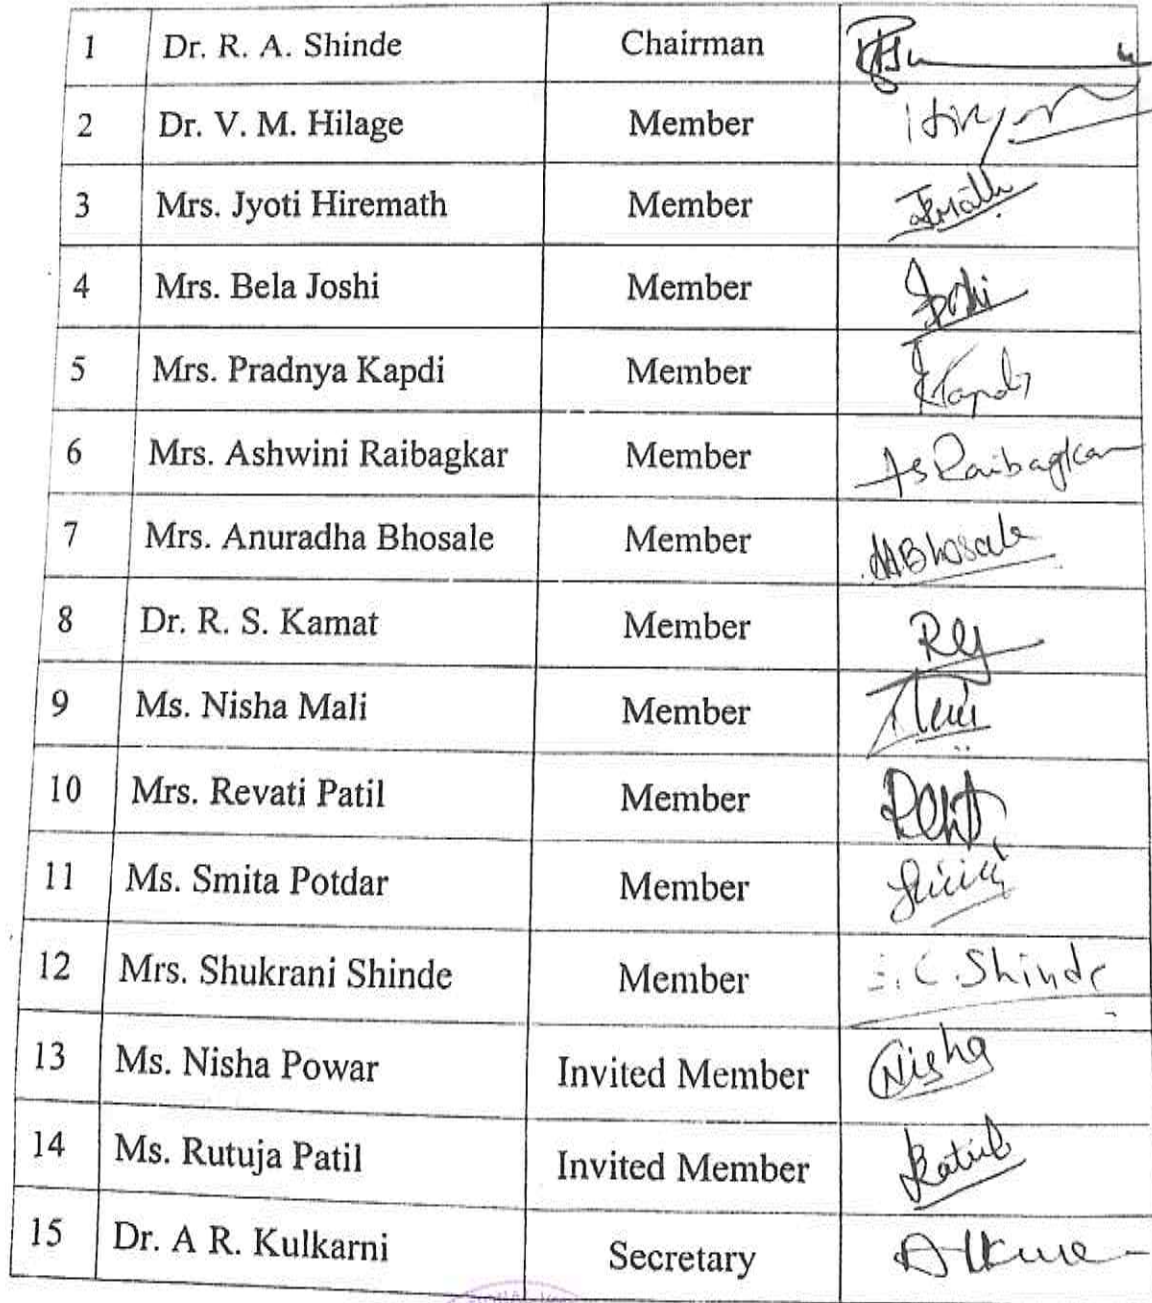 1 Dr. R. A. Shinde Chairman
2 Dr. V. M. Hilage Member
3 Mrs. Jyoti Hiremath Member
4 Mrs. Bela Joshi Member Joshi
5 Mrs. Pradnya Kapdi Member
6 Mrs. Ashwini Raibagkar Member As Raibagkar
7 Mrs. Anuradha Bhosale Member ABhosale
8 Dr. R. S. Kamat Member
9 Ms. Nisha Mali Member
10 Mrs. Revati Patil Member
11 Ms. Smita Potdar Member
12 Mrs. Shukrani Shinde Member S.C.Shinde
13 Ms. Nisha Powar Invited Member Nisha
14 Ms. Rutuja Patil Invited Member
15 Dr. A R. Kulkarni Secretary